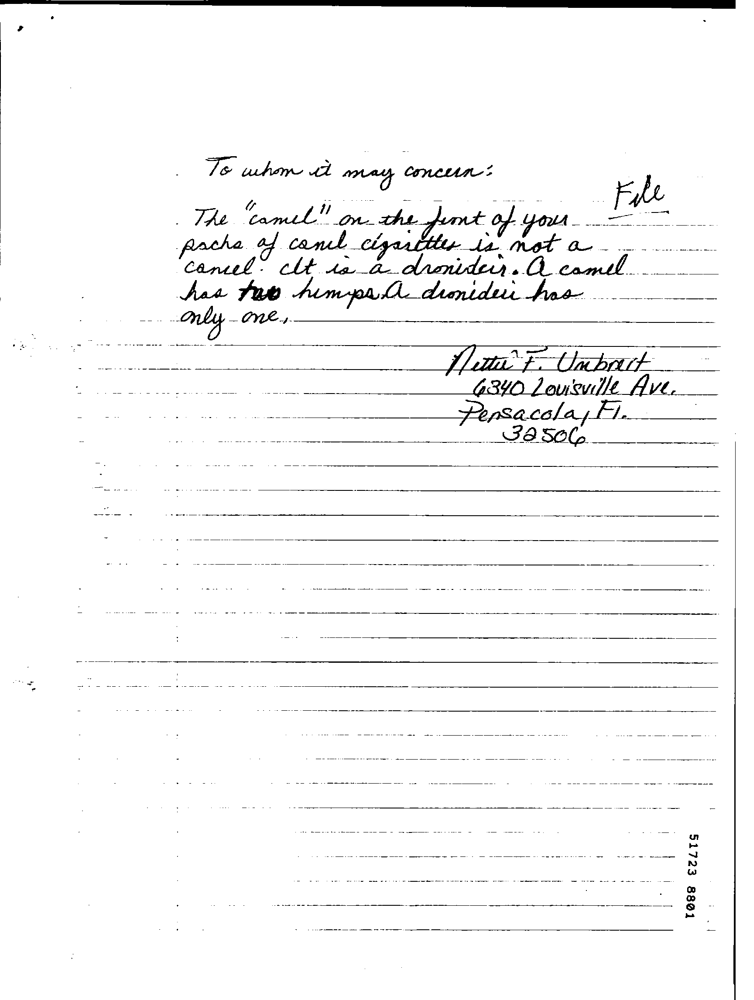 To whom it may concern:
File
The "camel" on the front of your
packs of camel cigarettes is not a
camel. It is a dronideir. A camel
has two humps. A dronideir has
only one.
Nettie F.
6340 Louisville Ave.
Pensacola, Fl.
32506
51723 8801